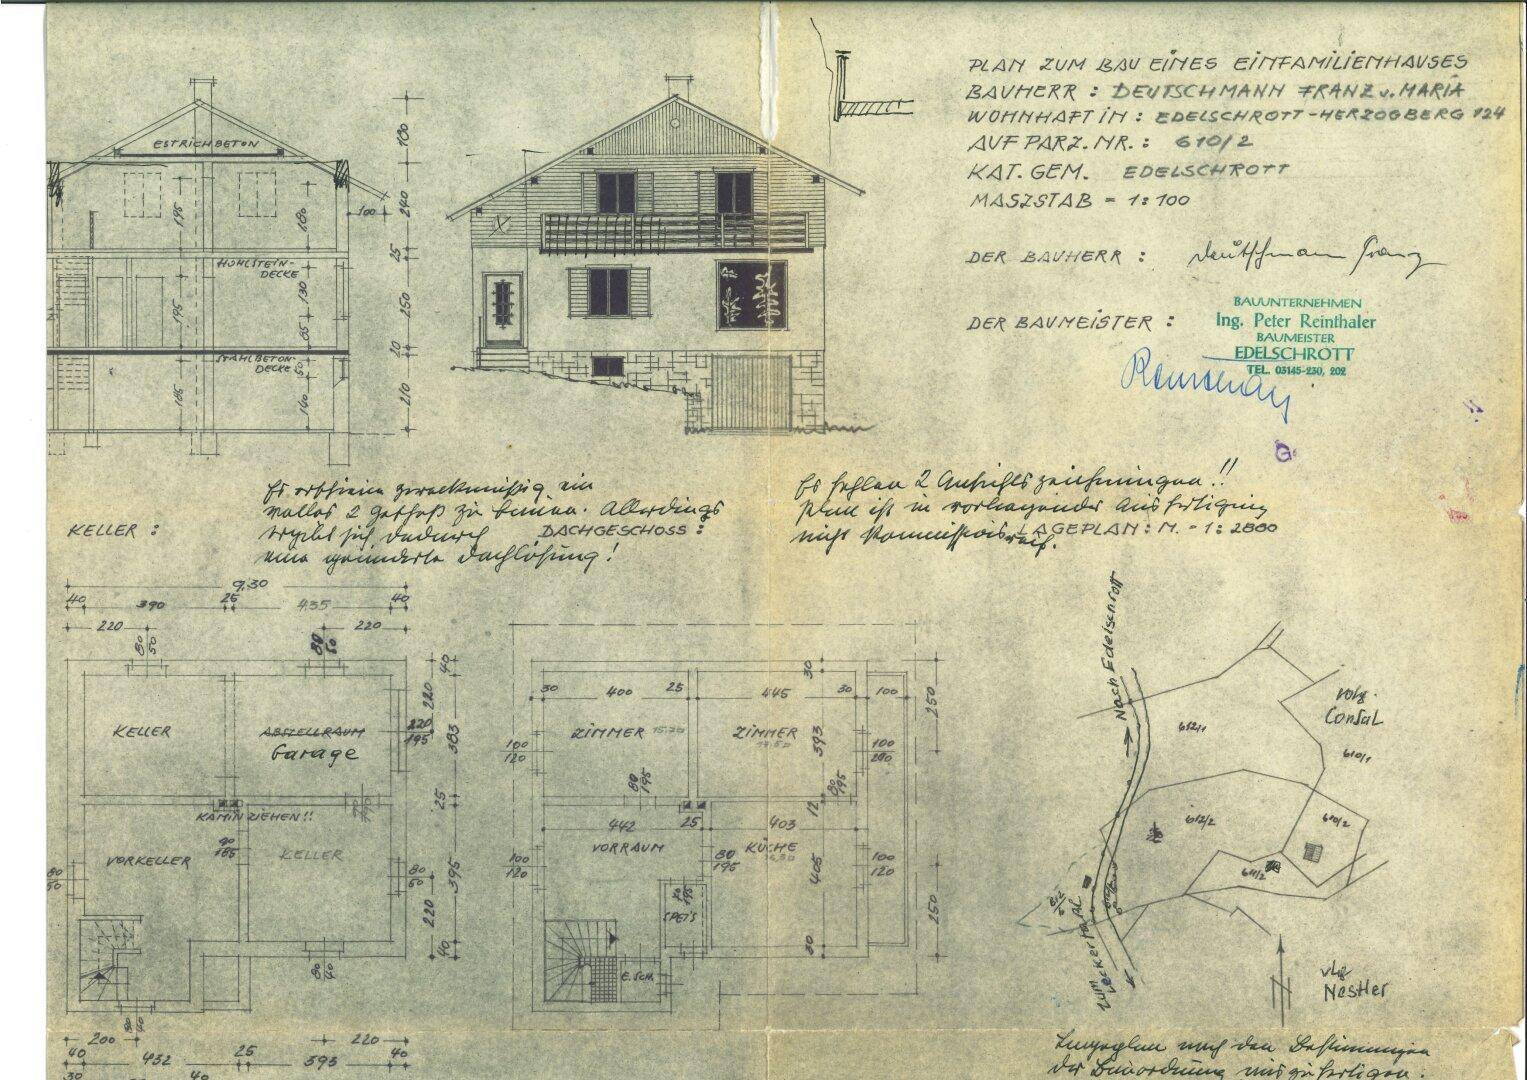 PLAN ZUM BAU EINES EINFAMILIENHAUSES
BAUHERR : DEUTSCHMANN FRANZ u. MARIA
WOHNHAFT IN : EDELSCHROTT-HERZOGBERG 124
AUF PARZ. NR. : 610/2
KAT. GEM. EDELSCHROTT
MASZSTAB = 1:100
DER BAUHERR : Deutschmann Franz
DER BAUMEISTER :
BAUUNTERNEHMEN
Ing. Peter Reinthaler
BAUMEISTER
EDELSCHROTT
TEL. 03145-230, 202
ESTRICHBETON
HOHLSTEIN-
DECKE
STAHLBETON-
DECKE
100
180
240
25
250
20
210
195
180
130
195
65
50
185
140
Es erscheint zweckmäßig ein
volles 2 Geschoß zu bauen. Allerdings
ergibt sich dadurch
eine geänderte Dachlösung!
Es fehlen 2 Ansichtszeichnungen!!
Plan ist in vorliegender Ausfertigung
nicht kommissionsreif.
KELLER :
DACHGESCHOSS :
LAGEPLAN : M. - 1: 2880
9,30
40
390
25
435
40
220
80
50
80
50
220
KELLER
ABSTELLRAUM
Garage
KAMIN ZIEHEN!!
VORKELLER
90
185
KELLER
40
220
220
195
383
25
80
50
395
220
40
80
50
80
40
80
40
200
220
40
432
25
393
40
30
40
30
400
25
445
30
100
30
250
ZIMMER
ZIMMER
393
100
120
100
200
80
195
80
195
12
442
25
403
VORRAUM
KÜCHE
80
195
405
100
120
100
120
SPEIS
E. SCH.
30
250
Nach Edelschrott
612/1
vulg.
Consal
610/1
612/2
610/2
611/2
vlg
Nestler
Lageplan nach den Bestimmungen
der Bauordnung auszufertigen.